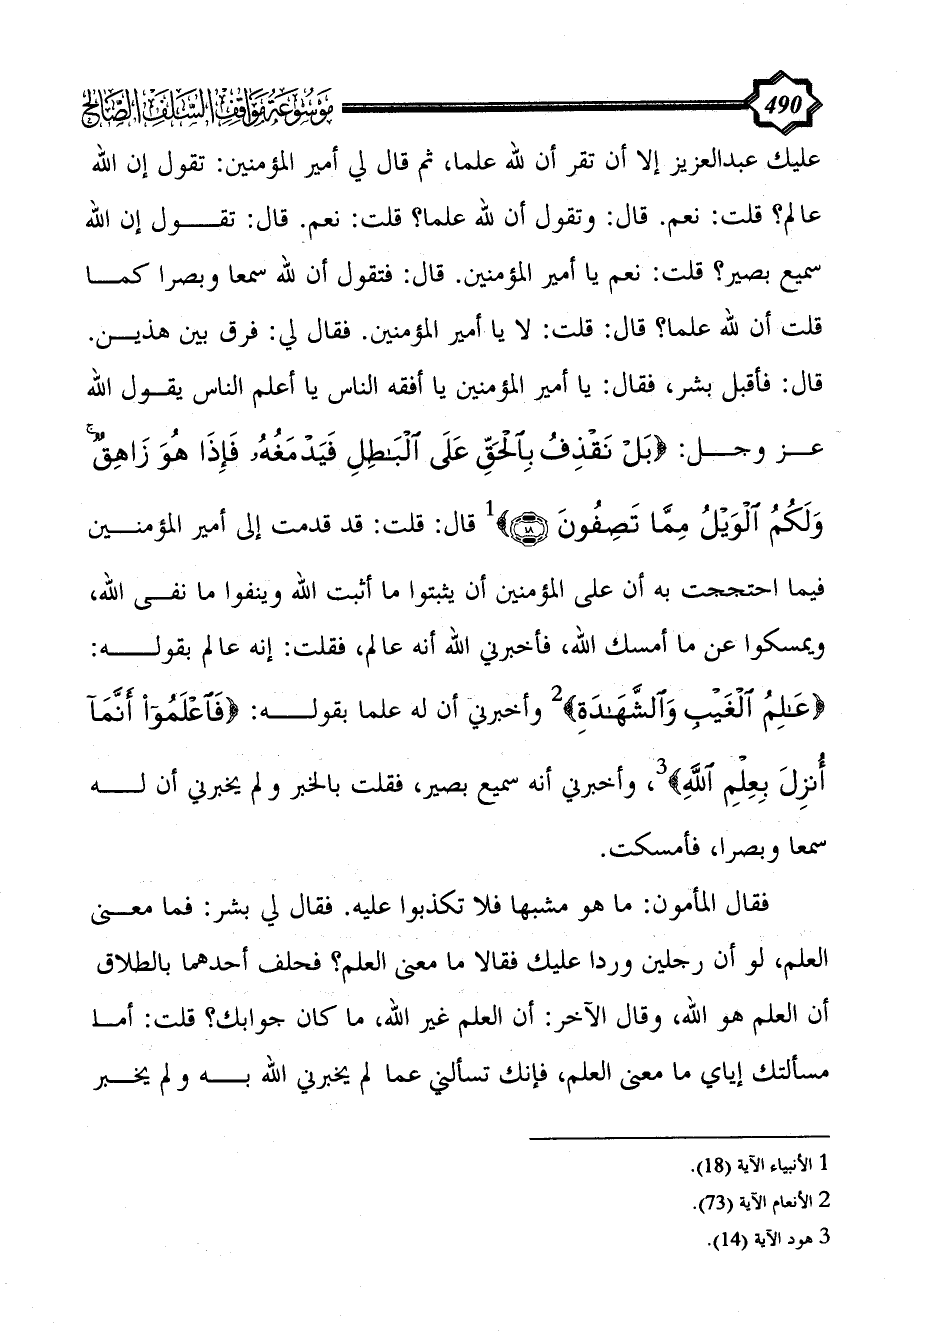 490 موسوعة مواقف السلف الصالح
عليك عبدالعزيز إلا أن تقر أن لله علما، ثم قال لي أمير المؤمنين: تقول إن الله
عالم؟ قلت: نعم. قال: وتقول أن لله علما؟ قلت: نعم. قال: تقول إن الله
سميع بصير؟ قلت: نعم يا أمير المؤمنين. قال: فتقول أن لله سمعا وبصرا كما
قلت أن لله علما؟ قال: قلت: لا يا أمير المؤمنين. فقال لي: فرق بين هذين.
قال: فأقبل بشر، فقال: يا أمير المؤمنين يا أفقه الناس يا أعلم الناس يقول الله
عز وجل: ﴿بَلْ نَقْذِفُ بِٱلْحَقِّ عَلَى ٱلْبَٰطِلِ فَيَدْمَغُهُۥ فَإِذَا هُوَ زَاهِقٌۚ
وَلَكُمُ ٱلْوَيْلُ مِمَّا تَصِفُونَ ١٨﴾1 قال: قلت: قد قدمت إلى أمير المؤمنين
فيما احتججت به أن على المؤمنين أن يثبتوا ما أثبت الله وينفوا ما نفى الله،
ويمسكوا عن ما أمسك الله، فأخبرني الله أنه عالم، فقلت: إنه عالم بقوله:
﴿عَٰلِمُ ٱلْغَيْبِ وَٱلشَّهَٰدَةِ﴾2 وأخبرني أن له علما بقوله: ﴿فَٱعْلَمُوٓا۟ أَنَّمَآ
أُنزِلَ بِعِلْمِ ٱللَّهِ﴾3، وأخبرني أنه سميع بصير، فقلت بالخبر ولم يخبرني أن له
سمعا وبصرا، فأمسكت.
فقال المأمون: ما هو مشبها فلا تكذبوا عليه. فقال لي بشر: فما معنى
العلم، لو أن رجلين وردا عليك فقالا ما معنى العلم؟ فحلف أحدهما بالطلاق
أن العلم هو الله، وقال الآخر: أن العلم غير الله، ما كان جوابك؟ قلت: أما
مسألتك إياي ما معنى العلم، فإنك تسألني عما لم يخبرني الله به ولم يخبر
1 الأنبياء الآية (18).
2 الأنعام الآية (73).
3 هود الآية (14).